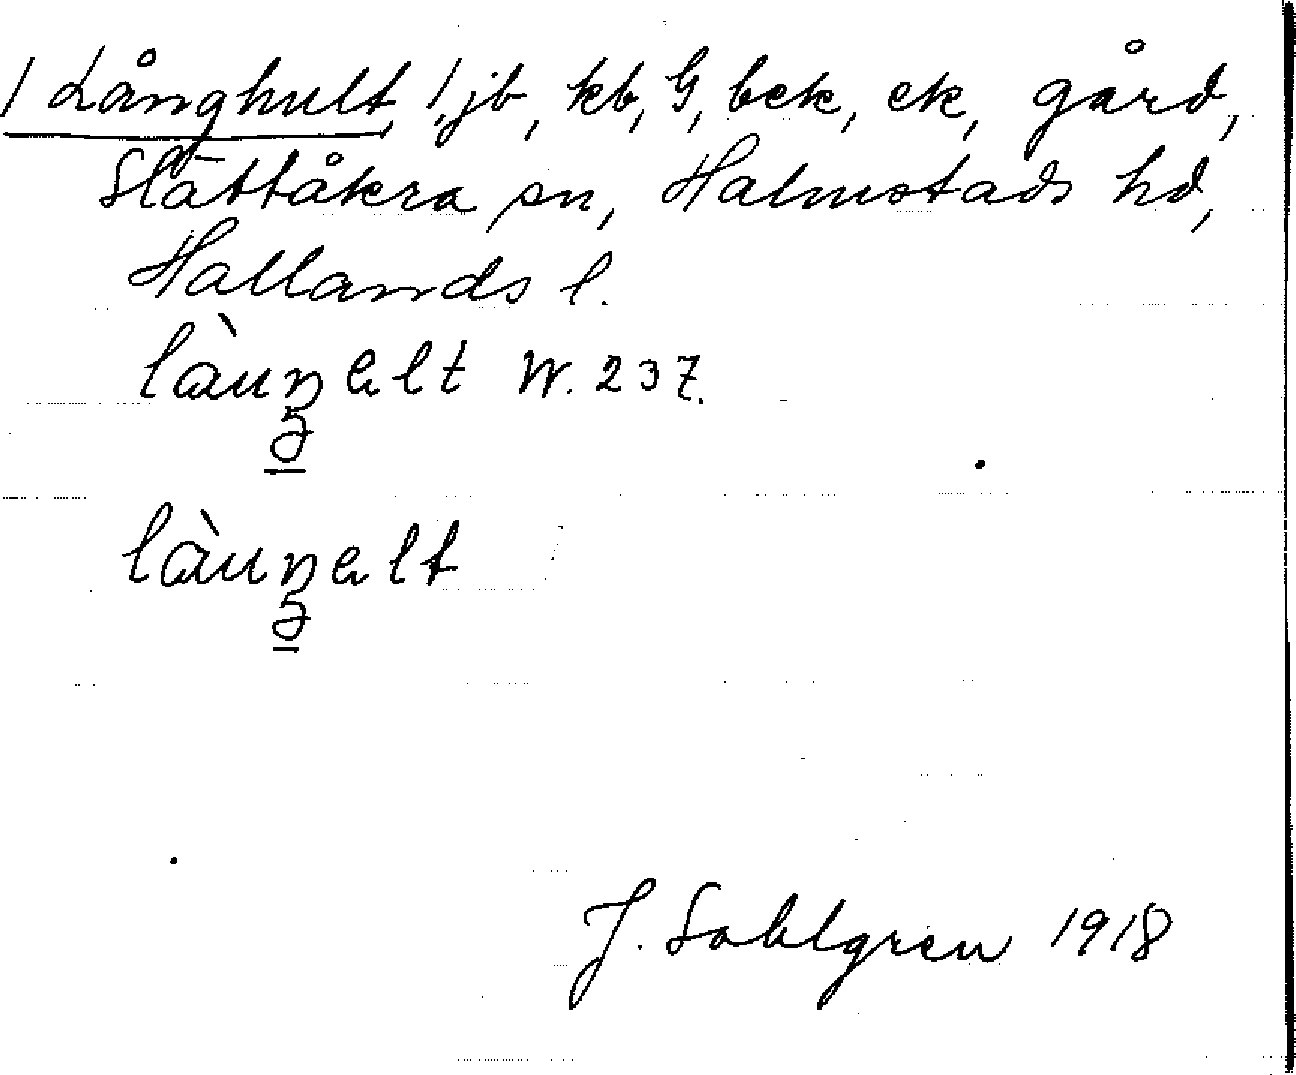 / Långhult, !, jb, kb, G, bek, ek, gård,
Slättåkra sn, Halmstads hd,
Hallands l.
làuŋelt W. 237.
làuŋelt
J. Sahlgren 1918